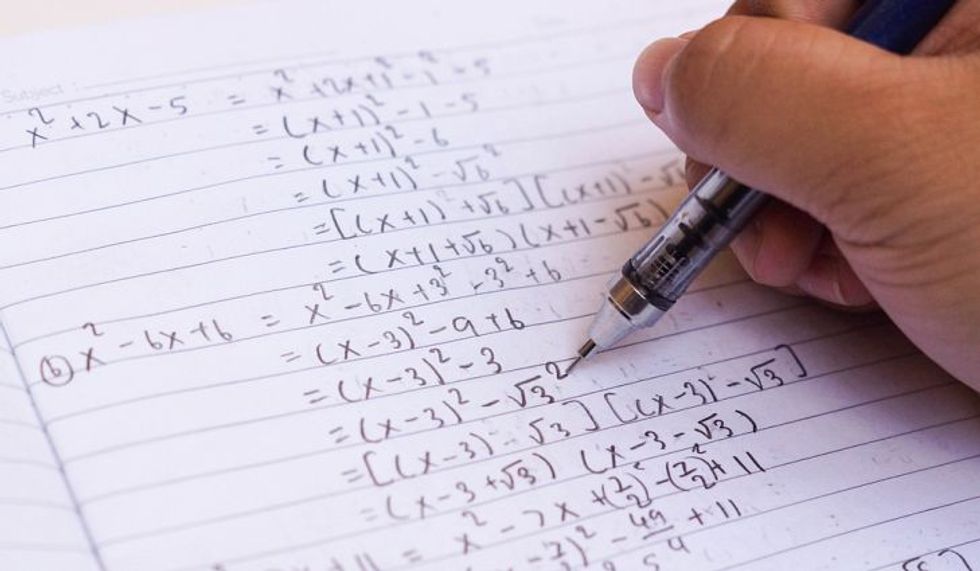 Subject :
x² + 2x - 5 = x² + 2x + 1² - 1² - 5
= (x+1)² - 1 - 5
= (x+1)² - 6
= (x+1)² - √6²
= [(x+1) + √6] [(x+1) - √6
= (x+1+√6) (x+1-√6)
(b) x² - 6x + 6 = x² - 6x + 3² - 3² + 6
= (x-3)² - 9 + 6
= (x-3)² - 3
= (x-3)² - √3²
= [(x-3) - √3] [(x-3) - √3]
= (x-3+√3) (x-3-√3)
+ 11 = x² - 7x + (7/2)² - (7/2)² + 11
- 7/2)² - 49/4 + 11